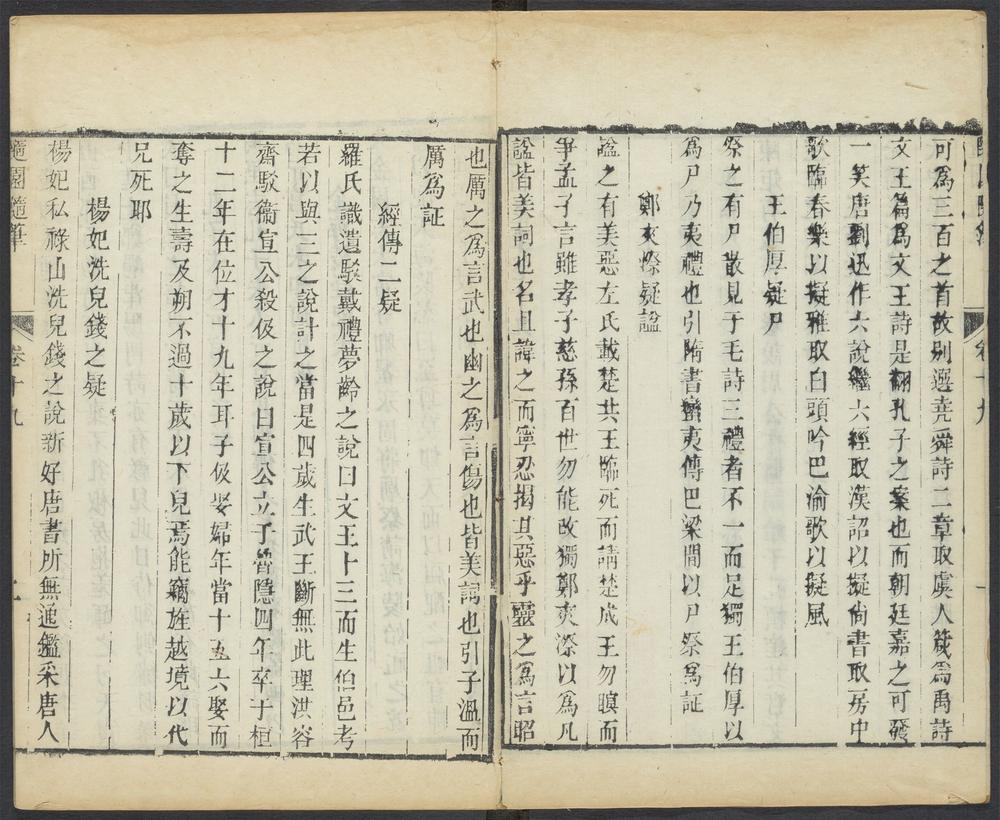 卷十九
可爲三百之首故别選堯舜詩二章取虞人箴爲禹詩
文王篇爲文王詩是翻孔子之案也而朝廷嘉之可發
一笑唐劉迅作六說繼六經取漢詔以擬尙書取房中
歌臨春樂以擬雅取白頭吟巴渝歌以擬風
王伯厚疑尸
祭之有尸散見于毛詩三禮者不一而足獨王伯厚以
爲尸乃夷禮也引隋書蠻夷傳巴梁間以尸祭爲証
鄭夾漈疑諡
諡之有美惡左氏載楚共王臨死而請楚成王勿瞑而
爭孟子言雖孝子慈孫百世勿能改獨鄭夾漈以爲凡
諡皆美詞也名且諱之而寧忍揭其惡乎靈之爲言昭
也厲之爲言武也幽之爲言傷也皆美詞也引子溫而
厲爲証
經傳二疑
羅氏識遺駁戴禮夢齡之說曰文王十三而生伯邑考
若以與三之說計之當是四歲生武王斷無此理洪容
齋駁衞宣公殺伋之說曰宣公立于魯隱四年卒于桓
十二年在位才十九年耳子伋娶婦年當十五六娶而
奪之生壽及朔不過十歲以下兒焉能竊旌越境以代
兄死耶
楊妃洗兒錢之疑
楊妃私祿山洗兒錢之說新舊唐書所無通鑑采唐人
隨園隨筆
卷十九
二